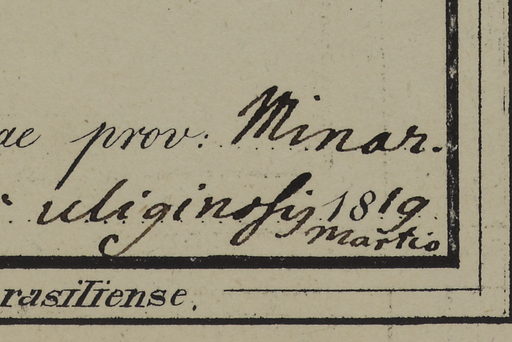 ae prov: Minar.
uliginosis 1819
Martio
rasiliense.